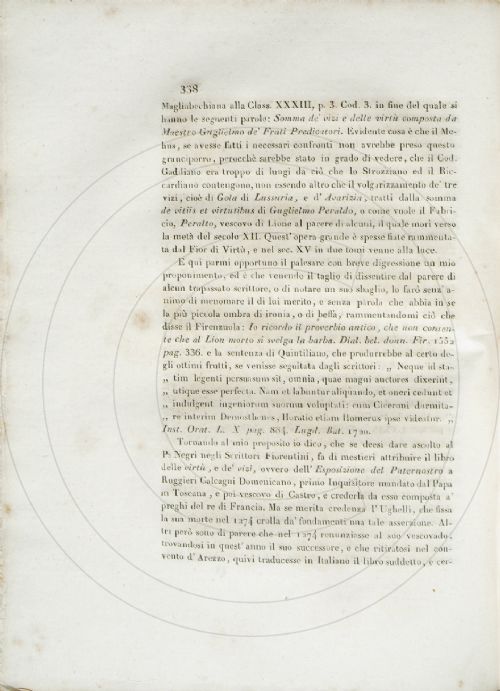 338
Magliabechiana alla Class. XXXIII, p. 3. Cod. 3. in fine del quale si
hanno le seguenti parole: Somma de' vizi e delle virtù composta da
Maestro Guglielmo de' Frati Predicatori. Evidente cosa è che il Me-
hus, se avesse fatti i necessari confronti non avrebbe preso questo
granciporro, perocchè sarebbe stato in grado di vedere, che il Cod.
Gaddiano era troppo di lungi da ciò che lo Strozziano ed il Ric-
cardiano contengono, non essendo altro che il volgarizzamento de' tre
vizi, cioè di Gola di Lussuria, e d' Avarizia, tratti dalla somma
de vitiis et virtutibus di Guglielmo Peraldo, o come vuole il Fabri-
cio, Peralto, vescovo di Lione al parere di alcuni, il quale morì verso
la metà del secolo XII. Quest' opera grande è spesse fiate rammenta-
ta dal Fior di Virtù, e nel sec. XV in due tomi venne alla luce.
E qui parmi opportuno il palesare con breve digressione un mio
proponimento, ed è che venendo il taglio di dissentire dal parere di
alcun trapassato scrittore, o di notare un suo sbaglio, lo farò senz' a-
nimo di menomare il di lui merito, e senza parola che abbia in se
la più piccola ombra di ironia, o di beffa, rammentandomi ciò che
disse il Firenzuola: Io ricordo il proverbio antico, che non consen-
te che al Lion morto si svelga la barba. Dial. bel. donn. Fir. 1552
pag. 336. e la sentenza di Quintiliano, che produrrebbe al certo de-
gli ottimi frutti, se venisse seguitata dagli scrittori: „ Neque id sta-
„ tim legenti persuasum sit, omnia, quae magni auctores dixerint,
„ utique esse perfecta. Nam et labuntur aliquando, et oneri cedunt et
„ indulgent ingeniorum suorum voluptati: cum Ciceroni dormita-
„ re interim Demosthenes, Horatio etiam Homerus ipse videatur. „
Inst. Orat. L. X pag. 884. Lugd. Bat. 1720.
Tornando al mio proposito io dico, che se deesi dare ascolto al
P. Negri negli Scrittori Fiorentini, fa di mestieri attribuire il libro
delle virtù, e de' vizi, ovvero dell' Esposizione del Paternostro a
Ruggieri Calcagni Domenicano, primo Inquisitore mandato dal Papa
in Toscana, e poi vescovo di Castro, e crederla da esso composta a'
preghi del re di Francia. Ma se merita credenza l' Ughelli, che fissa
la sua morte nel 1274 crolla da' fondamenti una tale asserzione. Al-
tri però sono di parere che nel 1274 renunziasse al suo vescovado,
trovandosi in quest' anno il suo successore, e che ritiratosi nel con-
vento d' Arezzo, quivi traducesse in Italiano il libro suddetto, è cer-